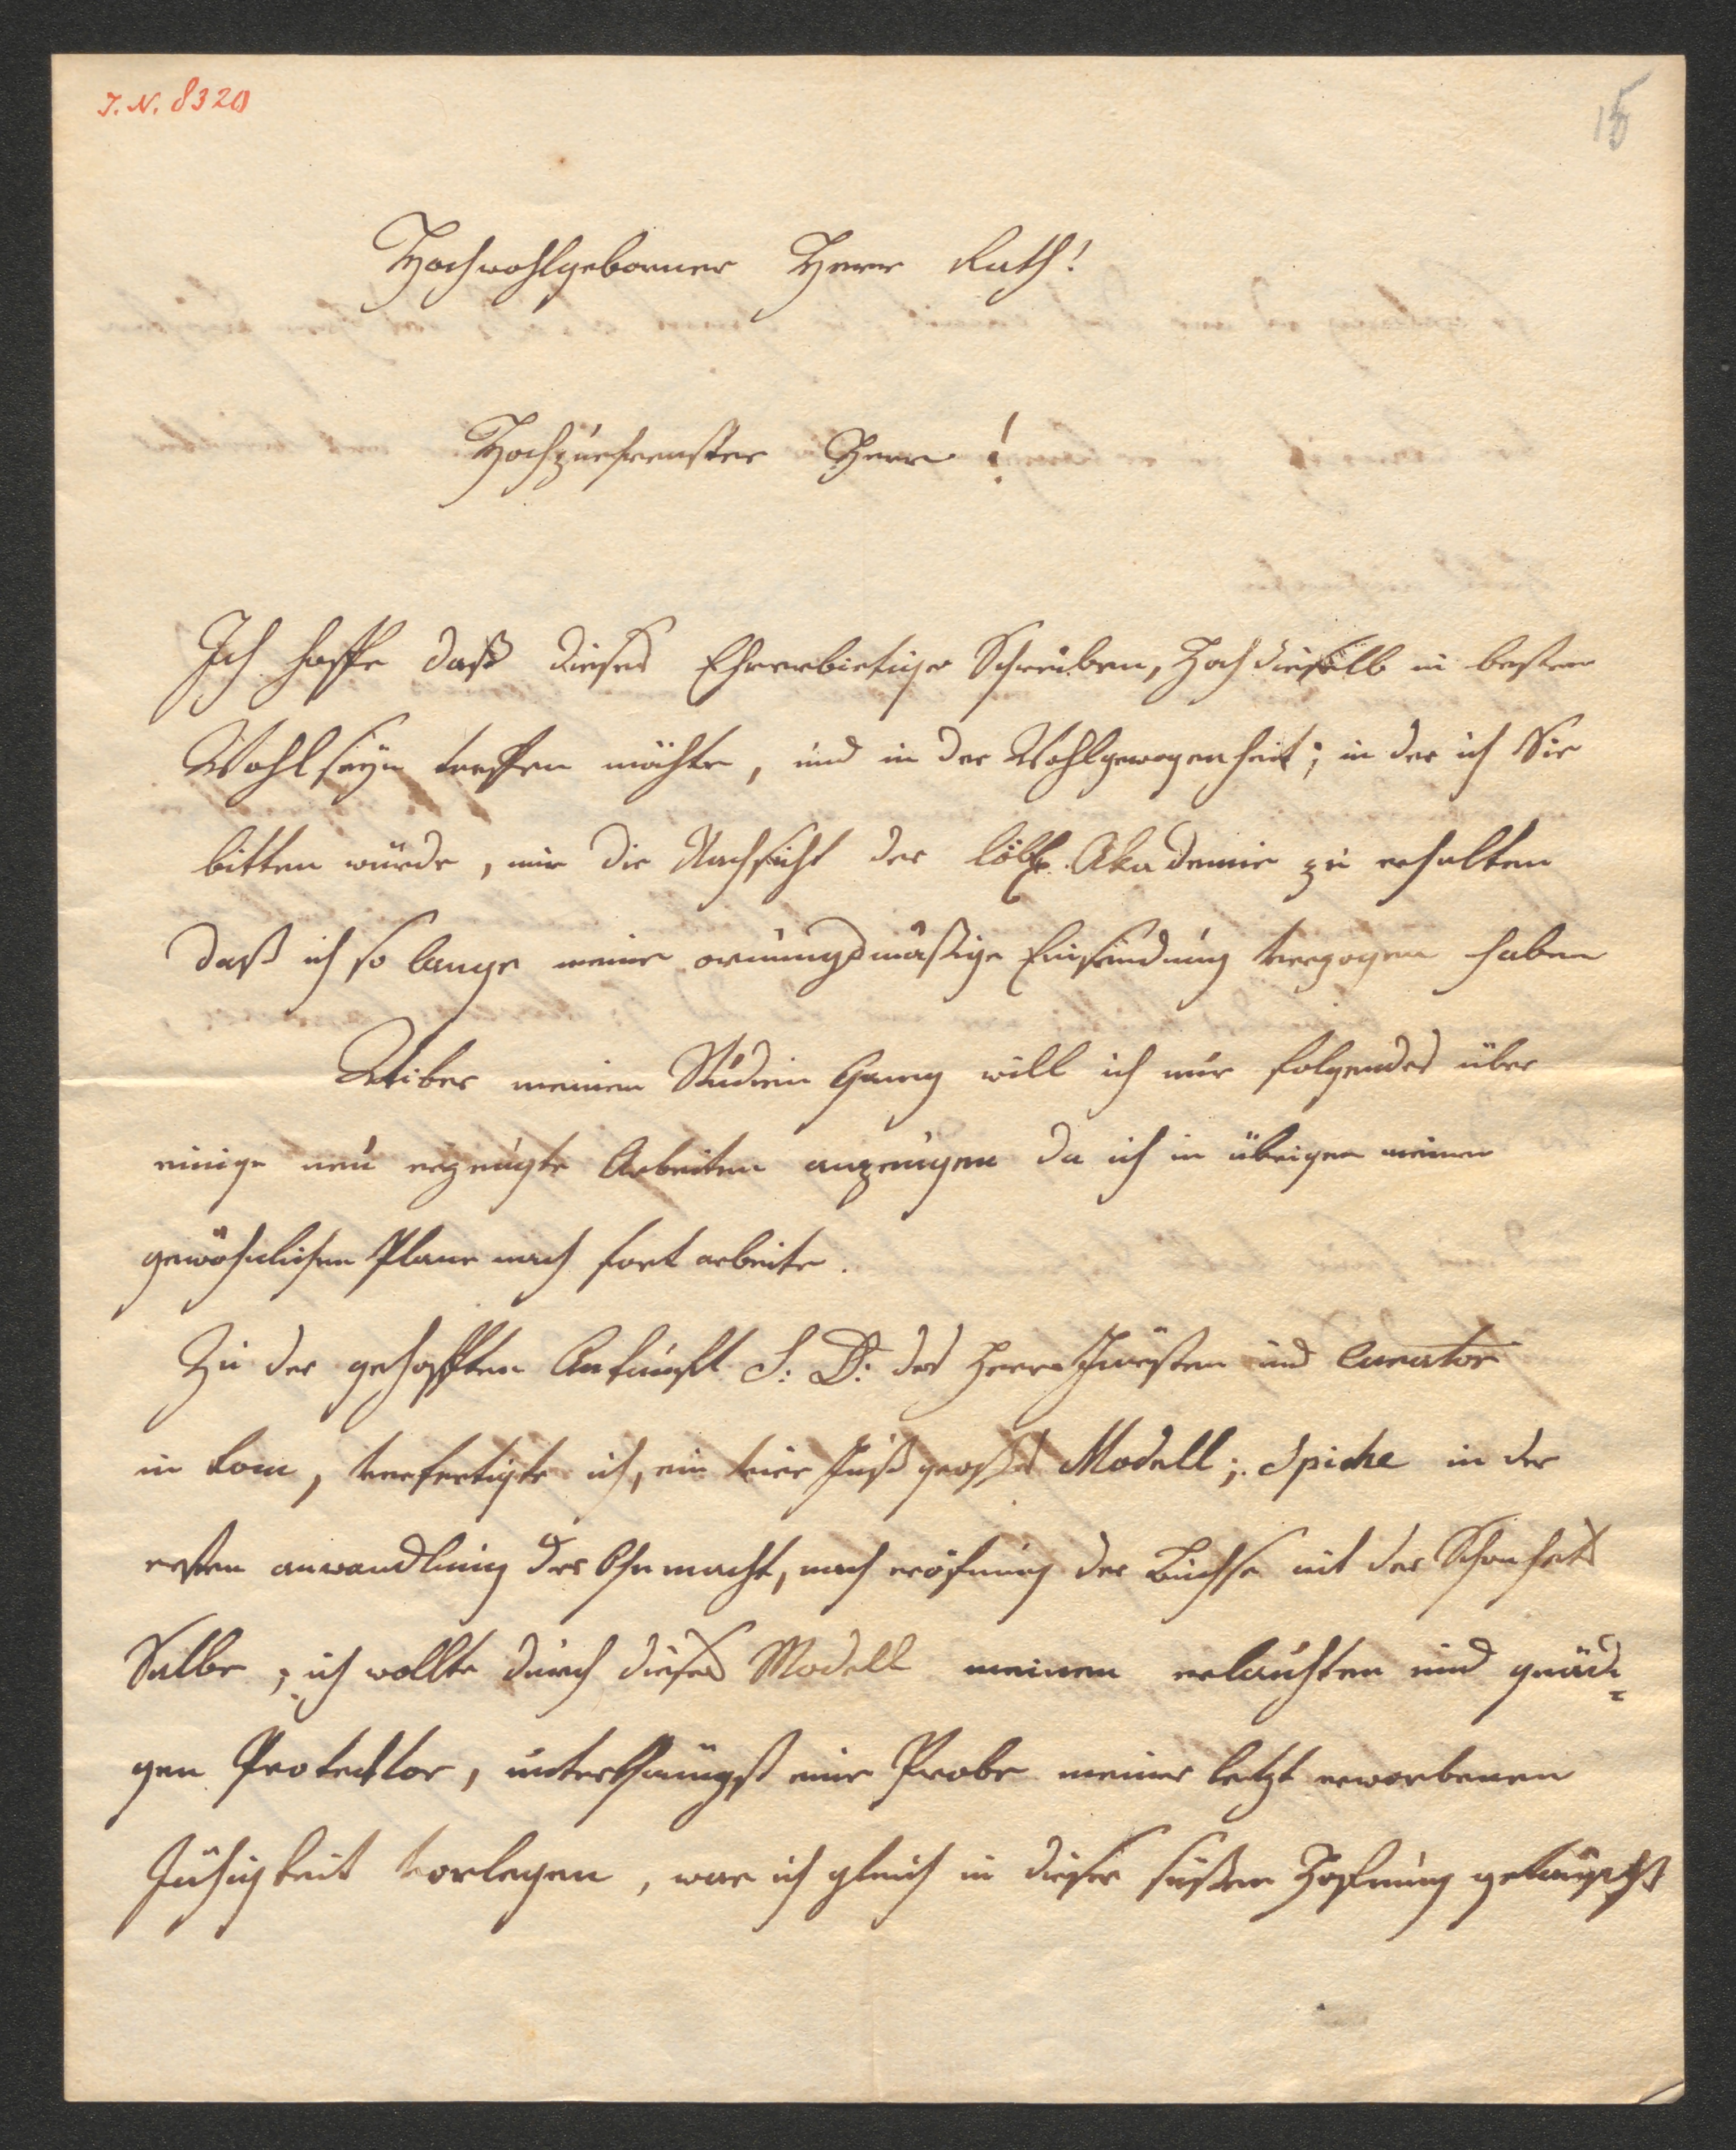 I. N. 8320
15
Hochwohlgeborner Herr Rath!
Hochzuehrenster Herr!
Ich hoffe daß dieses Ehrerbietige Schreiben, Hochdieselb in besten
Wohlseyn treffen möchte, und in der Wohlgewogenheit; in der ich Sie
bitten würde, mir die Nachsicht der löbl. Akademie zu erhalten
daß ich so lange meine ornungsmäßige Einsendung verzogen habe
Uiber meinen Studien Gang will ich nur folgendes über
einige neu erzeugte Arbeiten anzeugen da ich in übrigen meinen
gewöhnlichen Plane nach fort arbeite.
Zu der gehofften Ankunft S: D: des Herrn Fürsten und Curator
in Rom, verfertigte ich, ein vier Fuß großes Modell; Psiche in der
ersten anwandlung der Ohnmacht, nach eröfnung der Büchse mit der Schönheits
Salbe; ich wollte durch dieses Modell meinen erlauchten und gnädi¬
gen Protecktor, unterthänigst eine Probe meiner letzt erworbenen
Fähigkeit vorlegen, war ich gleich in dieser süßen Hofnung getäuscht